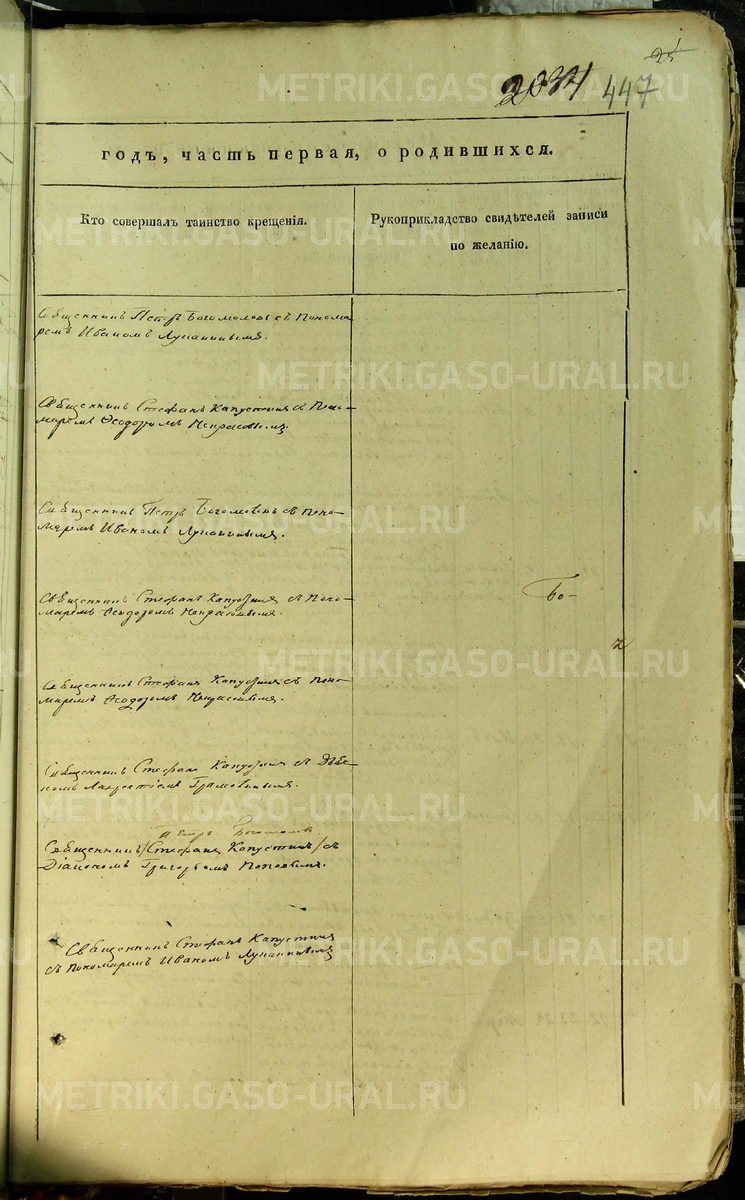 25
2034 447
годъ, часть первая, о родившихся.
Кто совершалъ таинство крещенія.
Рукоприкладство свидѣтелей записи
по желанію.
Священникъ Петръ Богомоловъ съ Понома
ремъ Иваномъ Лупанинымъ.
Священникъ Стефанъ Капустинъ съ Поно-
маремъ Ѳеодоромъ Некрасовымъ.
Священникъ Петръ Богомоловъ съ Поно-
маремъ Иваномъ Лупанинымъ.
Священникъ Стефанъ Капустинъ съ Поно-
маремъ Ѳеодоромъ Некрасовымъ.
Бо-
Священникъ Стефанъ Капустинъ съ Поно-
маремъ Ѳеодоромъ Некрасовымъ.
Священникъ Стефанъ Капустинъ съ Дьяч-
комъ
Петръ Богомолов
Священникъ /Стефанъ Капустинъ/ съ
Діакономъ Григорьемъ Поповымъ.
Священникъ Стефанъ Капустинъ
съ Пономаремъ Иваномъ Лупанинымъ
METRIKI.GASO-URAL.RU